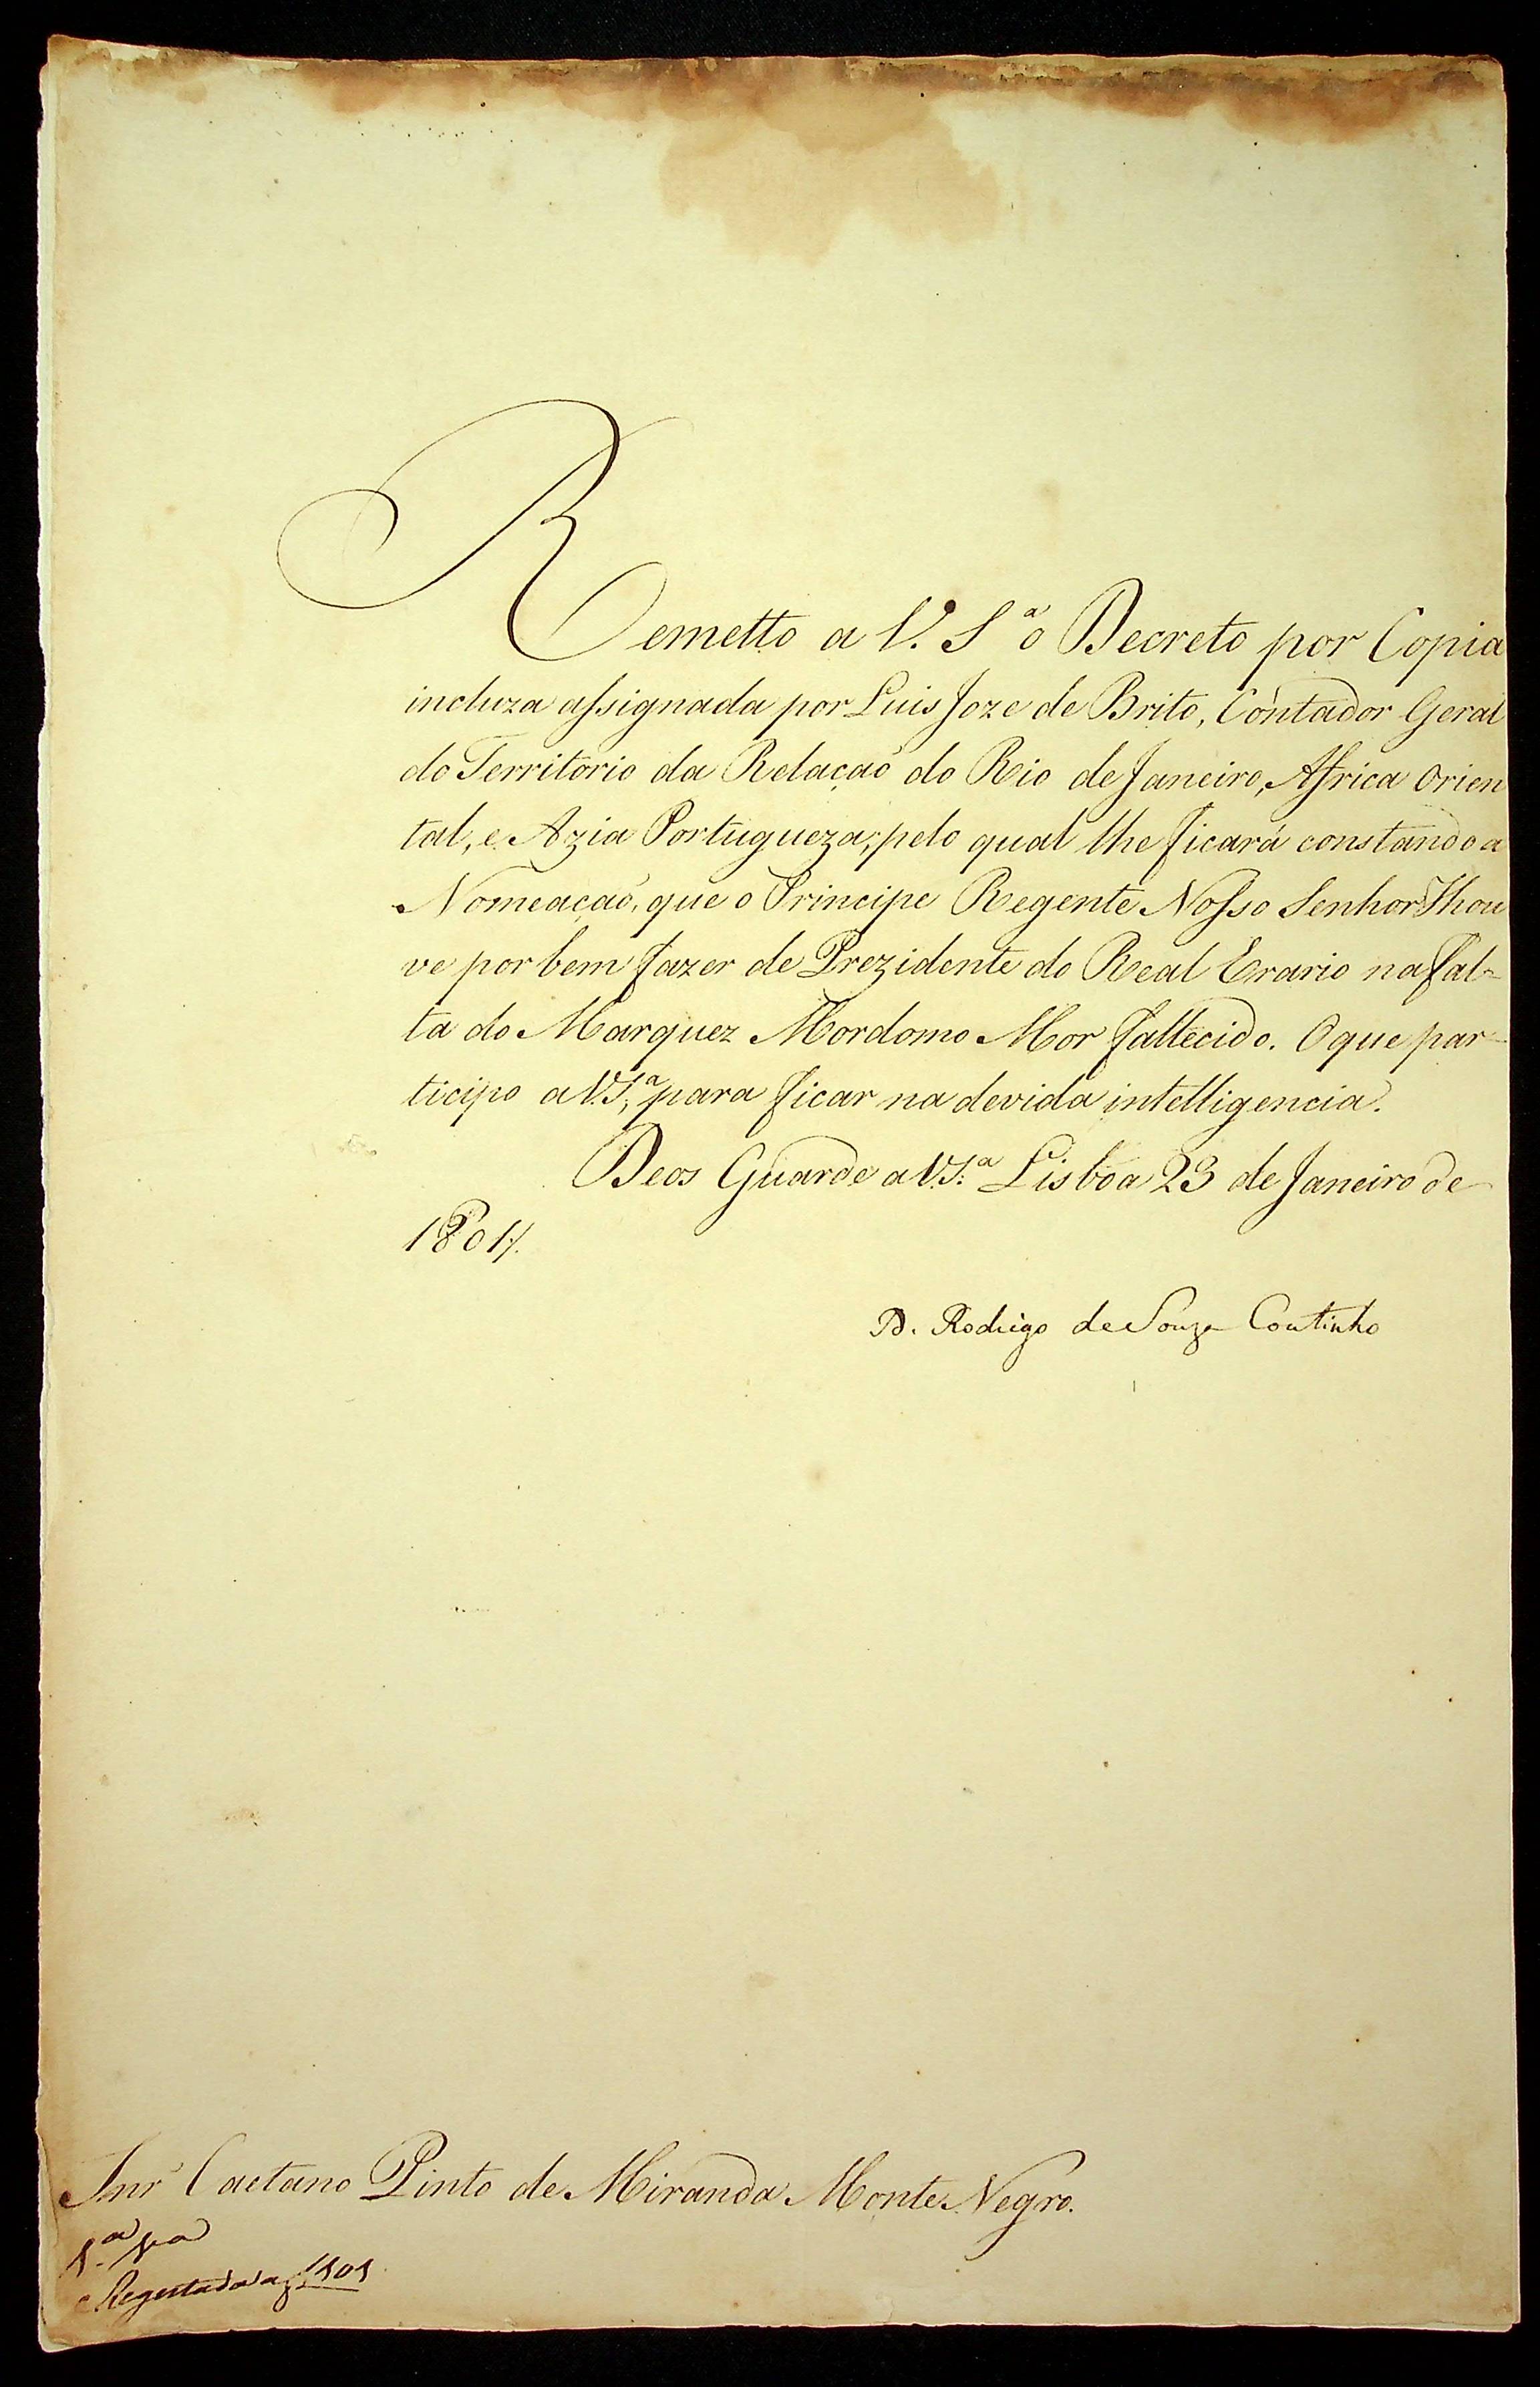 Remetto a V. S.ª o Decreto por Copia
incluza assignada por Luis Joze de Brito, Contador Geral
do Territorio da Relaçaõ do Rio de Janeiro, Africa Orien
tal, e Azia Portugueza; pelo qual lhe ficará constando a
Nomeaçaõ, que o Principe Regente Nosso Senhor Hou
ve por bem fazer de Prezidente do Real Erario na fal-
ta do Marquez Mordomo Mor fallecido. O que par-
ticipo a V.S.ª, para ficar na devida intelligencia.
Deos Guarde a V.S.ª Lisboa 23 de Janeiro de
1801.
D. Rodrigo de Souza Coutinho
Snr Caetano Pinto de Miranda Monte Negro.
1.ª via
Registada a f